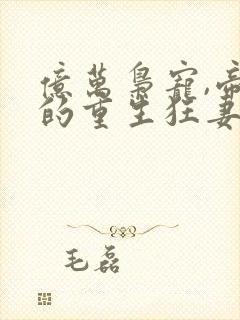 億萬梟寵,帝
的重生狂妻
毛磊